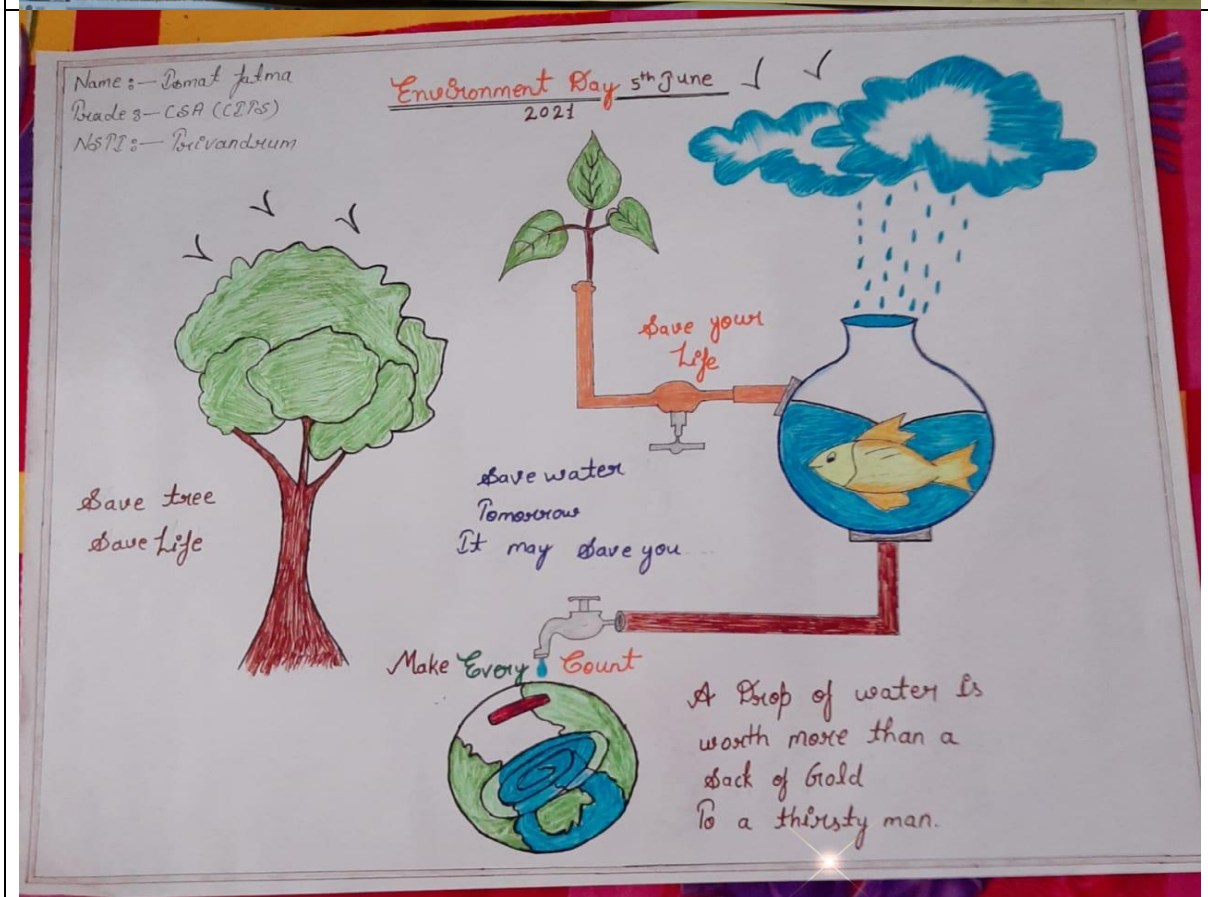 Name :— Ismat Fatma
Trade :— CSA (CITS)
NSTI :— Trivandrum
Environment Day 5th June
2021
Save your
Life
Save tree
Save Life
Save water
Tomorrow
It may Save you...
Make Every Count
A Drop of water is
worth more than a
Sack of Gold
To a thirsty man.